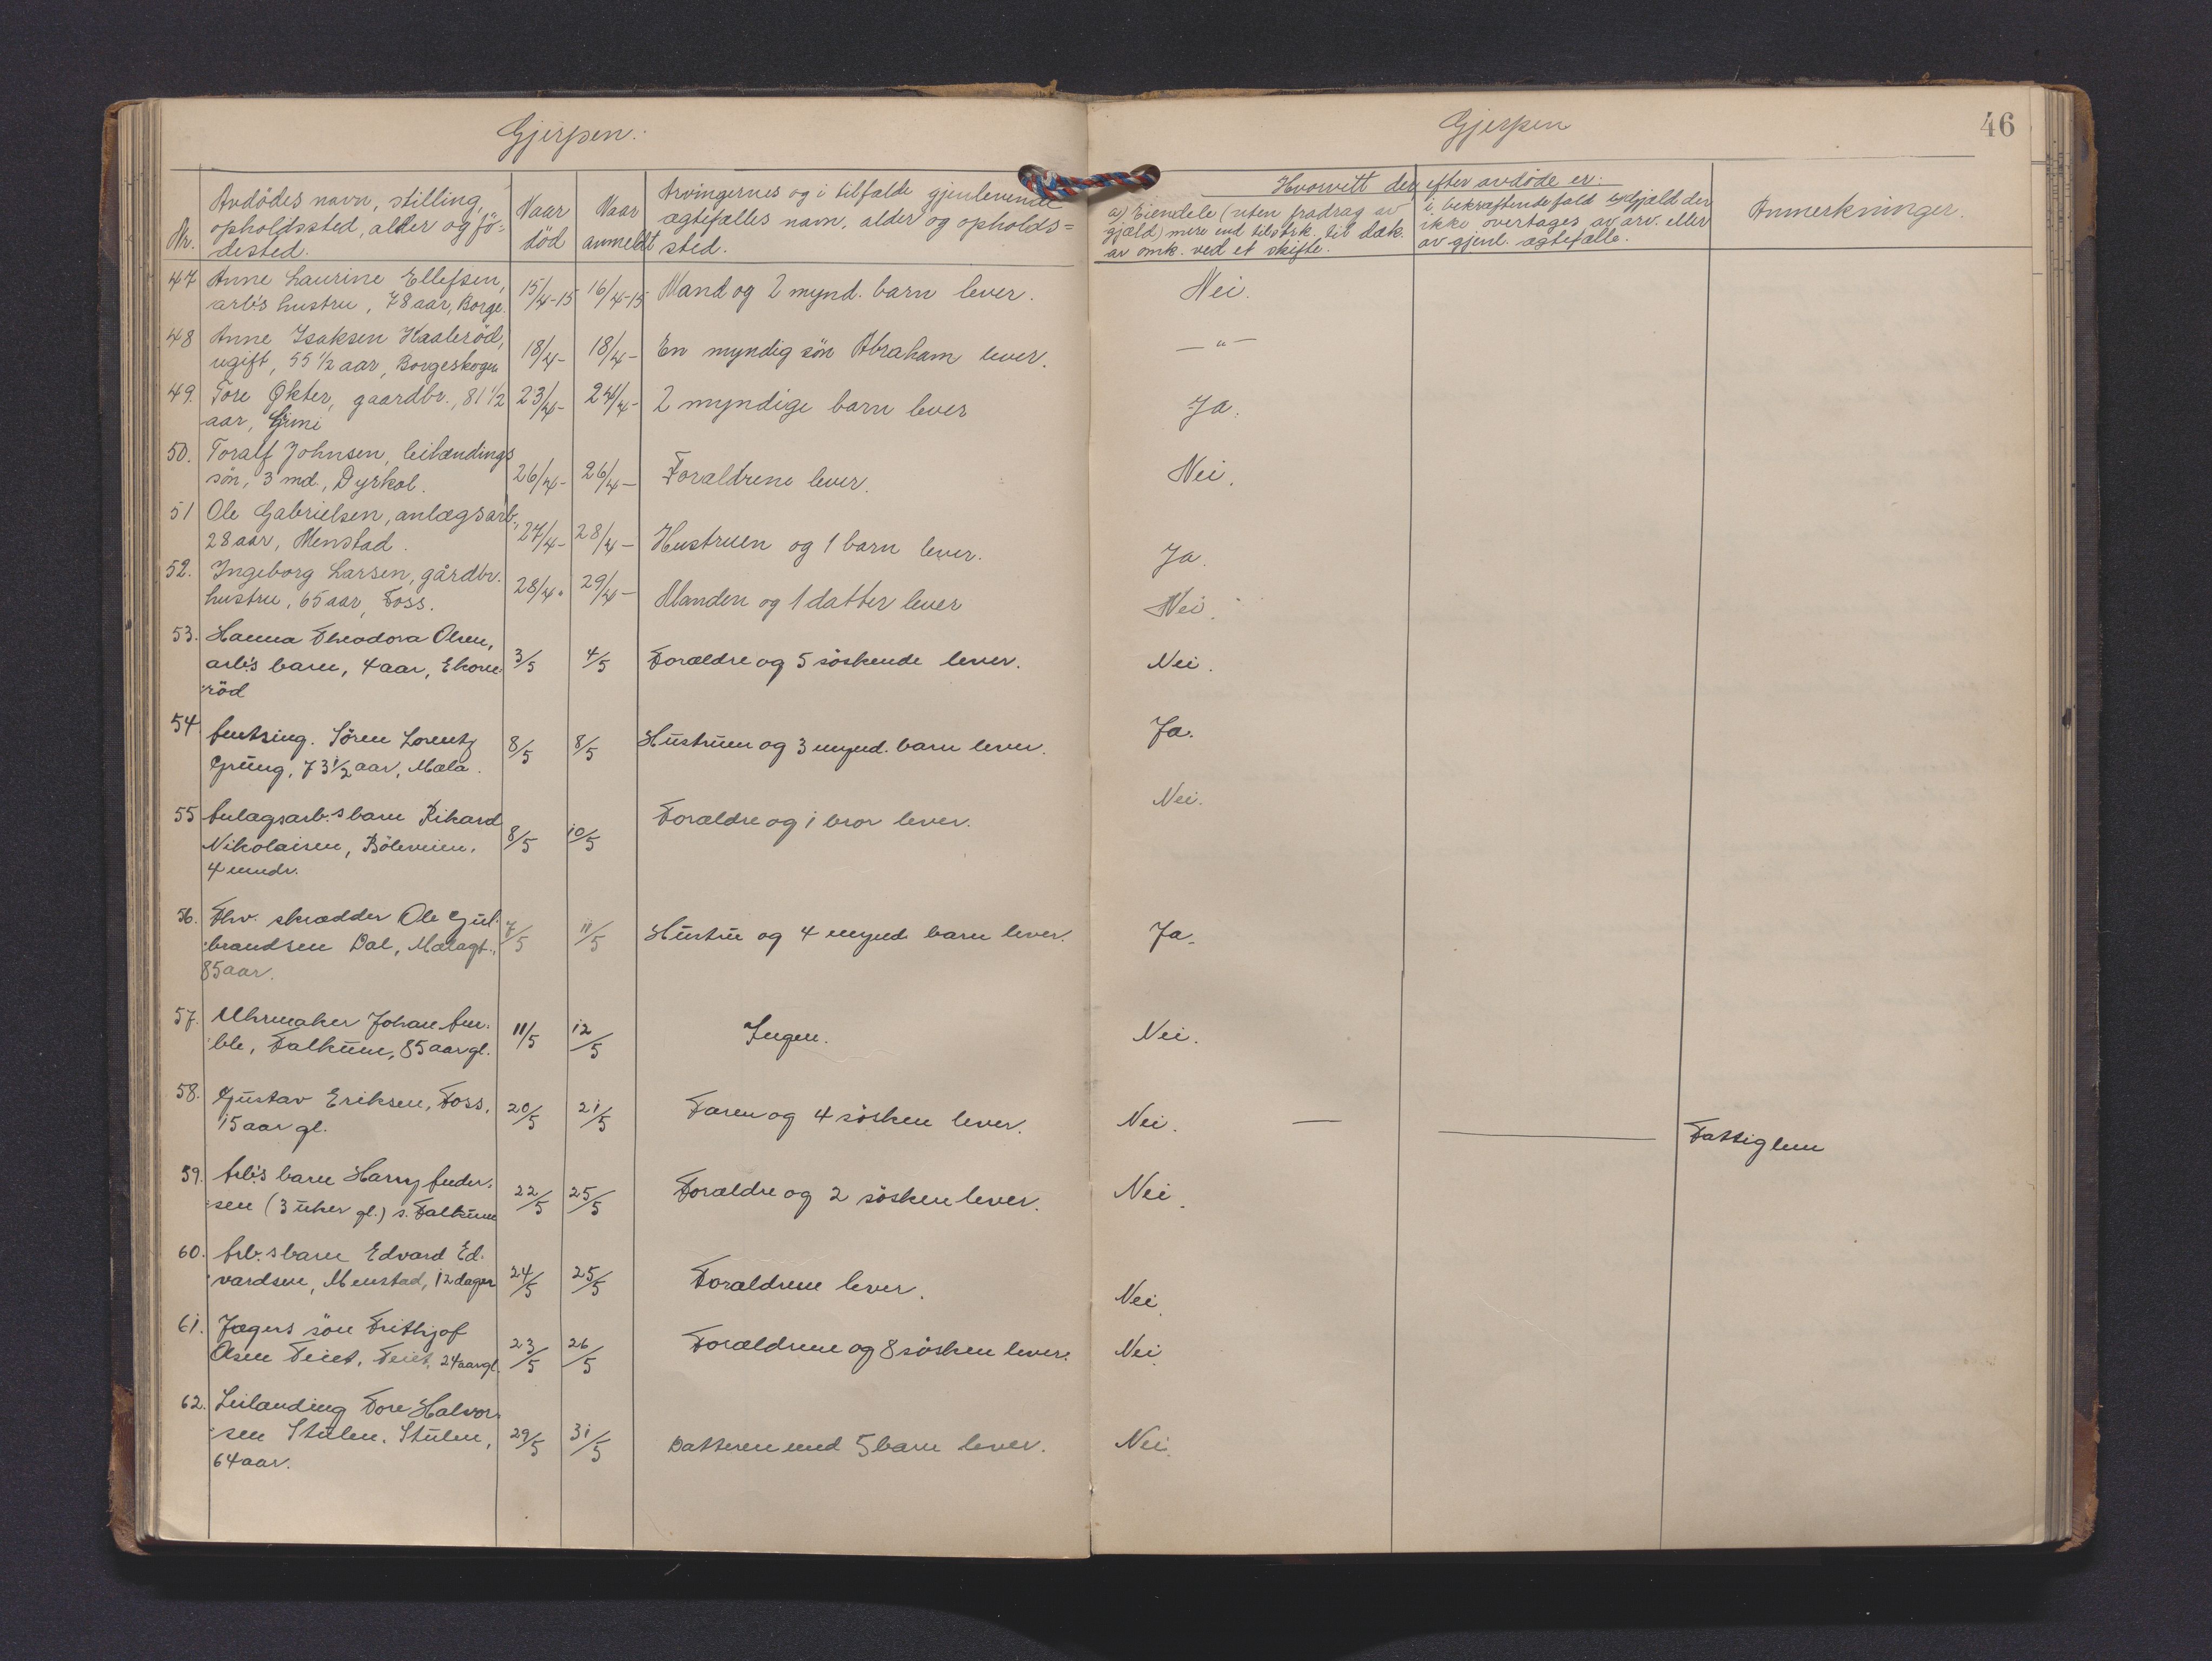 Gjerpen.
Gjerpen
46
Nr.
Avdödes navn, stilling,
opholdssted, alder og fö-
dested.
Naar
död
Naar
anmeldt
Arvingernes og i tilfælde gjenlevende
ægtefælles navn, alder og opholds=
sted.
Hvorvitt der efter avdöde er:
a) Eiendele (uten fradrag av
gjæld) mere end tilstrk. til dæk.
av omk. ved et skifte.
i bekræftende fald b) Gjæld der
ikke overtages av arv. eller
av gjenl. ægtefælle.
Anmerkninger.
47 Anne Laurine Ellefsen,
arb's hustru, 78 aar, Borge. 15/4-15 16/4-15 Mand og 2 mynd. barn lever. Nei.
48 Anne Isaksen Haaleröd,
ugift, 55 1/2 aar, Borgeskogen 18/4- 18/4- En myndig sön Abraham lever. — " —
49. Tore Økter, gaardbr., 81 1/2 23/4- 24/4- 2 myndige barn lever Ja.
aar, Gjimi
50. Toralf Johnsen, leilændings
sön, 3 md., Dyrkol. 26/4- 26/4- Forældrene lever. Nei.
51 Ole Gabrielsen, anlægsarb.,
28 aar, Menstad. 27/4- 28/4- Hustruen og 1 barn lever. Ja.
52. Ingeborg Larsen, gårdbr.
hustru, 65 aar, Foss. 28/4" 29/4- Manden og 1 datter lever Nei.
53. Hanna Theodora Olsen,
arb's barn, 4 aar, Ekorn- 3/5 4/5 Forældre og 5 söskende lever. Nei.
:röd
54. Amtsing. Sören Lorentz
Grüng, 73 1/2 aar, Mæla. 8/5 8/5 Hustruen og 3 mynd. barn lever. Ja.
55 Anlægsarb.s barn Rikard
Nikolaisen, Böleveien, 8/5 10/5 Forældre og 1 bror lever. Nei.
4 mndr.
56. Fhv. skrædder Ole Gul-
:brandsen Dal, Mælagt., 7/5 11/5 Hustru og 4 mynd. barn lever. Ja.
85 aar.
57. Uhrmaker Johan Am-
:ble, Falkum, 85 aar gl. 11/5 12/5 Ingen. Nei.
58. Gustav Eriksen, Foss,
15 aar gl. 20/5 21/5 Faren og 4 sösken lever. Nei. — — Fattiglem
59. Arb's barn Harry Ander-
:sen (3 uker gl.) s. Falkum 22/5 25/5 Forældre og 2 sösken lever. Nei.
60. Arb.s barn Edvard Ed-
:vardsen, Menstad, 12 dager 24/5 25/5 Forældrene lever. Nei.
61. Jægers sön Frithjof
Olsen Feiet, Feiet, 24 aar gl. 23/5 26/5 Forældrene og 8 sösken lever. Nei.
62. Leilænding Tore Halvor-
:sen Stulen, Stulen, 29/5 31/5 Datteren med 5 barn lever. Nei.
64 aar.